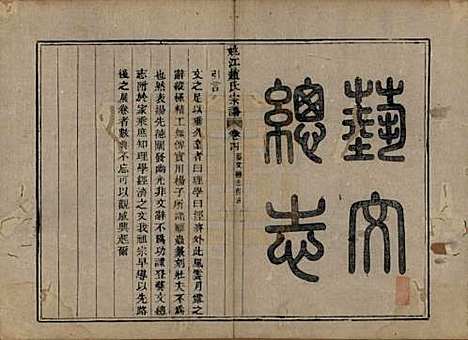 藝文
總志
姚江趙氏宗譜 卷十四
引言
文之足以垂久遠者曰理學曰經濟外此風雲月露之
辭縱極精工無俾實用楊子所謂雕蟲篆刻壯夫不為
也然表揚先德闡發幽光非文辭不為功謹登藝文總
志附於家乘庶知理學經濟之文我祖宗早導以先路
後之展卷者數典不忘可以觀感興起爾